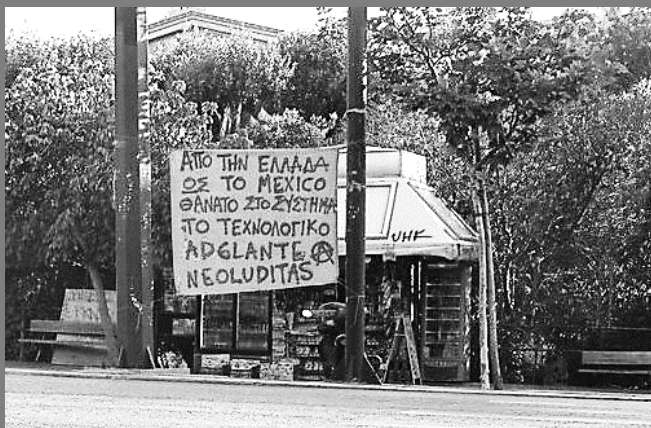 ΑΠΟ ΤΗΝ ΕΛΛΑΔΑ
ΩΣ ΤΟ MEXICO
ΘΑΝΑΤΟ ΣΤΟ ΣΥΣΤΗΜΑ
ΤΟ ΤΕΧΝΟΛΟΓΙΚΟ
ADELANTE Ⓐ
NEOLUDITAS